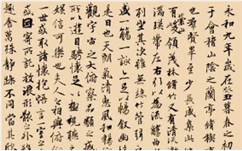 永和九年歲在癸丑暮春之初
于會稽山陰之蘭亭脩禊
也羣賢畢至少長咸集此
有崇山峻領茂林脩竹又有清流
湍暎帶左右引以為流觴曲
列坐其次雖無絲竹管弦
盛一觴一詠亦足以暢敘幽
是日也天朗氣清惠風和暢
觀宇宙之大俯察品類之
所以遊目騁懷足以極視聽
娛信可樂也夫人之相與俯
一世或取諸懷抱悟言一室之
或因寄所託放浪形骸之
趣舍萬殊靜躁不同當其